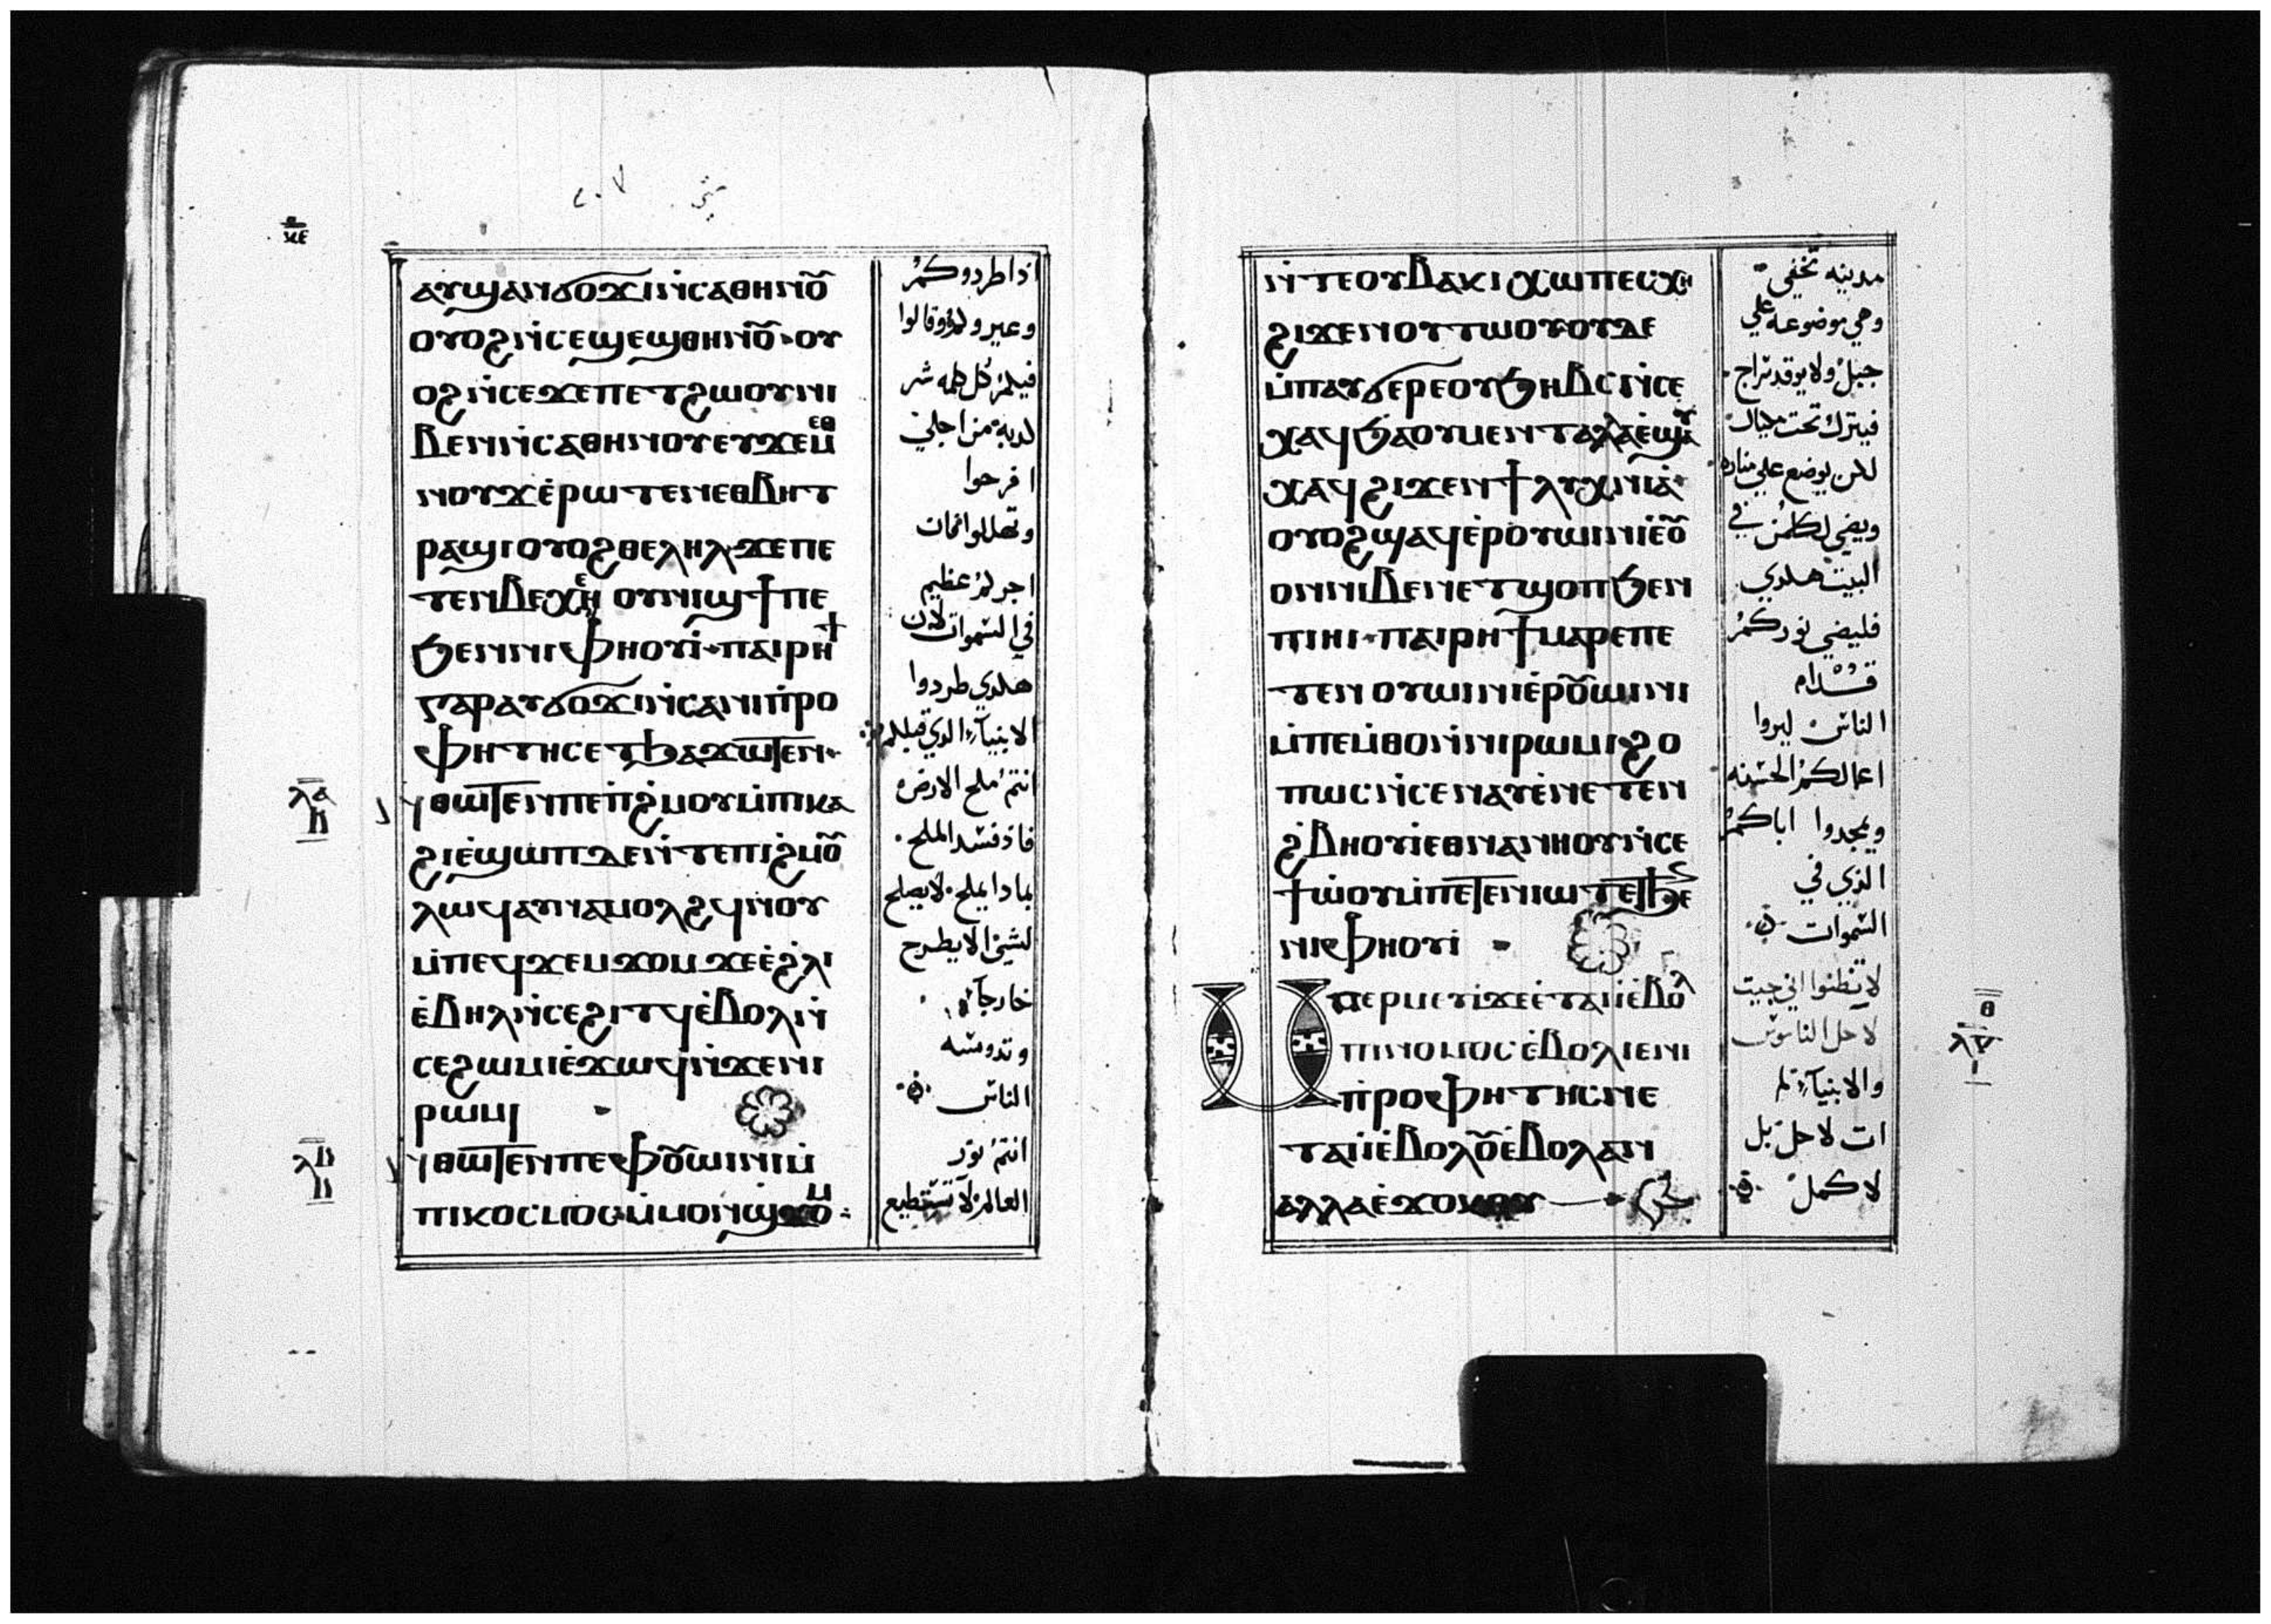 ⲁⲩϣⲁⲛϭⲟϫⲓⲛ̀ⲥⲁⲑⲏⲛⲟ̅ⲩ
ⲟⲩⲟϩⲛ̀ⲥⲉϣⲉϣⲑⲏⲛⲟ̅ⲩ ⲟⲩ
ⲟϩⲛ̀ⲥⲉϫⲉⲡⲉⲧϩⲱⲟⲩⲛⲓ
ⲃⲉⲛⲛ̀ⲥⲁⲑⲏⲛⲟⲩⲉⲩϫⲉⲙ
ⲛⲟⲩϫⲉ́ⲣⲱⲧⲉⲛⲉⲑⲃⲏⲧ
ⲣⲁϣⲓⲟⲩⲟϩⲑⲉⲗⲏⲗϫⲉⲡⲉ
ⲧⲉⲛⲃⲉⲭⲉ̀ ⲟⲩⲛⲓϣϯⲡⲉ
ϧⲉⲛⲛⲓⲫⲏⲟⲩⲓ̀ ⲡⲁⲓⲣⲏϯ
ⲅⲁⲣⲁⲩϭⲟϫⲓⲛ̀ⲥⲁⲛⲓⲡ̀ⲣⲟ
ⲫⲏⲧⲏⲥⲉⲧϧⲁϫⲱⲧⲉⲛ
ⲛ̀ⲑⲱⲧⲉⲛⲡⲉⲡ̀ϩⲙⲟⲩⲙ̀ⲡⲕⲁ
ϩⲓⲉ̀ϣⲱⲡⲇⲉⲛ̀ⲧⲉⲡⲓϩⲙⲟ̅ⲩ
ⲗⲱϥⲁⲩⲛⲁⲙⲟⲗϩϥⲛⲟⲩ
ⲙ̀ⲡⲉϥϫⲉⲙϫⲟⲙϫⲉⲉ̀ϩⲗⲓ
ⲉ̀ⲃⲏⲗⲛ̀ⲥⲉϩⲓⲧϥⲉ̀ⲃⲟⲗⲛ̀
ⲥⲉϩⲱⲙⲓⲉ̀ϫⲱϥⲛ̀ϫⲉⲛⲓ
ⲣⲱⲙⲓ
ⲛ̀ⲑⲱⲧⲉⲛⲡⲉⲫⲟ̅ⲩⲱⲓⲛⲓⲙ̀
ⲡⲓⲕⲟⲥⲙⲟⲥⲙ̀ⲙⲟⲛϣϫⲟⲙ
اذا طردوكم
وعيرولم وقالوا
فيكم كل كلمه شر
لدبه من اجلي
افرحوا
وتهللوا فان
اجركم عظيم
في السموات لان
هكدي طردوا
الانبيآء الدي قبلكم
انتم ملح الارض
فاذ فسد الملح
بمادا يملح لا يصلح
لشي الا يطرح
خارجاً
وتدوسه
الناس
انتم نور
العالم لا تستطيع
ⲗⲁ
ⲗⲃ
ⲛ̀ⲧⲉⲟⲩⲃⲁⲕⲓⲭⲱⲡⲉⲥⲭⲏ
ϩⲓϫⲉⲛⲟⲩⲧⲱⲟⲩⲟⲩⲇⲉ
ⲙ̀ⲡⲁⲩϭⲉⲣⲉⲟⲩϧⲏⲃⲥⲛ̀ⲥⲉ
ⲭⲁϥϧⲁⲟⲩⲙⲉⲛⲧⲁⲗⲗⲁⲉ̀ϣⲁⲩ
ⲭⲁϥϩⲓϫⲉⲛϯⲗⲩⲭⲛⲓⲁ̀
ⲟⲩⲟϩϣⲁϥⲉ̀ⲣⲟⲩⲱⲓⲛⲓⲉ̀ⲟ̅ⲩ
ⲟⲛⲛⲓⲃⲉⲛⲉⲧϣⲟⲡϧⲉⲛ
ⲡⲓⲏⲓ ⲡⲁⲓⲣⲏϯⲙⲁⲣⲉⲡⲉ
ⲧⲉⲛ ⲟⲩⲱⲓⲛⲓⲉ̀ⲣⲟ̅ⲩⲱⲓⲛⲓ
ⲙ̀ⲡⲉⲙ̀ⲑⲟⲛ̀ⲛⲓⲣⲱⲙⲓ ϩⲟ
ⲡⲱⲥⲛ̀ⲥⲉⲛⲁⲩⲉ̀ⲛⲉⲧⲉⲛ
ϩ̀ⲃⲏⲟⲩⲓ̀ⲉⲑⲛⲁⲛⲏⲟⲩⲛ̀ⲥⲉ
ϯⲱ̀ⲟⲩⲙ̀ⲡⲉⲧⲉⲛⲓⲱⲧⲉⲧϧⲉ
ⲛⲓⲫⲏⲟⲩⲓ̀
ⲙⲡⲉⲣⲙⲉⲩⲓ̀ϫⲉⲉ̀ⲧⲁⲓⲓ̀ⲉ̀ⲃⲟⲗ
ⲡⲓⲛⲟⲙⲟⲥⲉ̀ⲃⲟⲗⲓⲉⲛⲓ
ⲡ̀ⲣⲟⲫⲏⲧⲏⲥⲛⲉ
ⲧⲁⲓⲓ̀ⲉ̀ⲃⲟⲗⲟ̅ⲩⲉ̀ⲃⲟⲗⲁⲛ
ⲁⲗⲗⲁⲉ̀ϫⲟⲕⲟⲩ
مدينه تخفي
وهي موضوعه علي
جبل ولا يوقد سراج
فيترك تحت مكيال
لكن يوضع علي مناره
ويضي لكلمن في
البيت هكدي
فليضي نوركم
قدام
الناس ليروا
اعمالكم الحسنه
ويمجدوا اباكم
الذي في
السموات
لا تظنوا اني جيت
لاحل الناموس
والانبيآء لم
ات لاحل بل
لاكمل